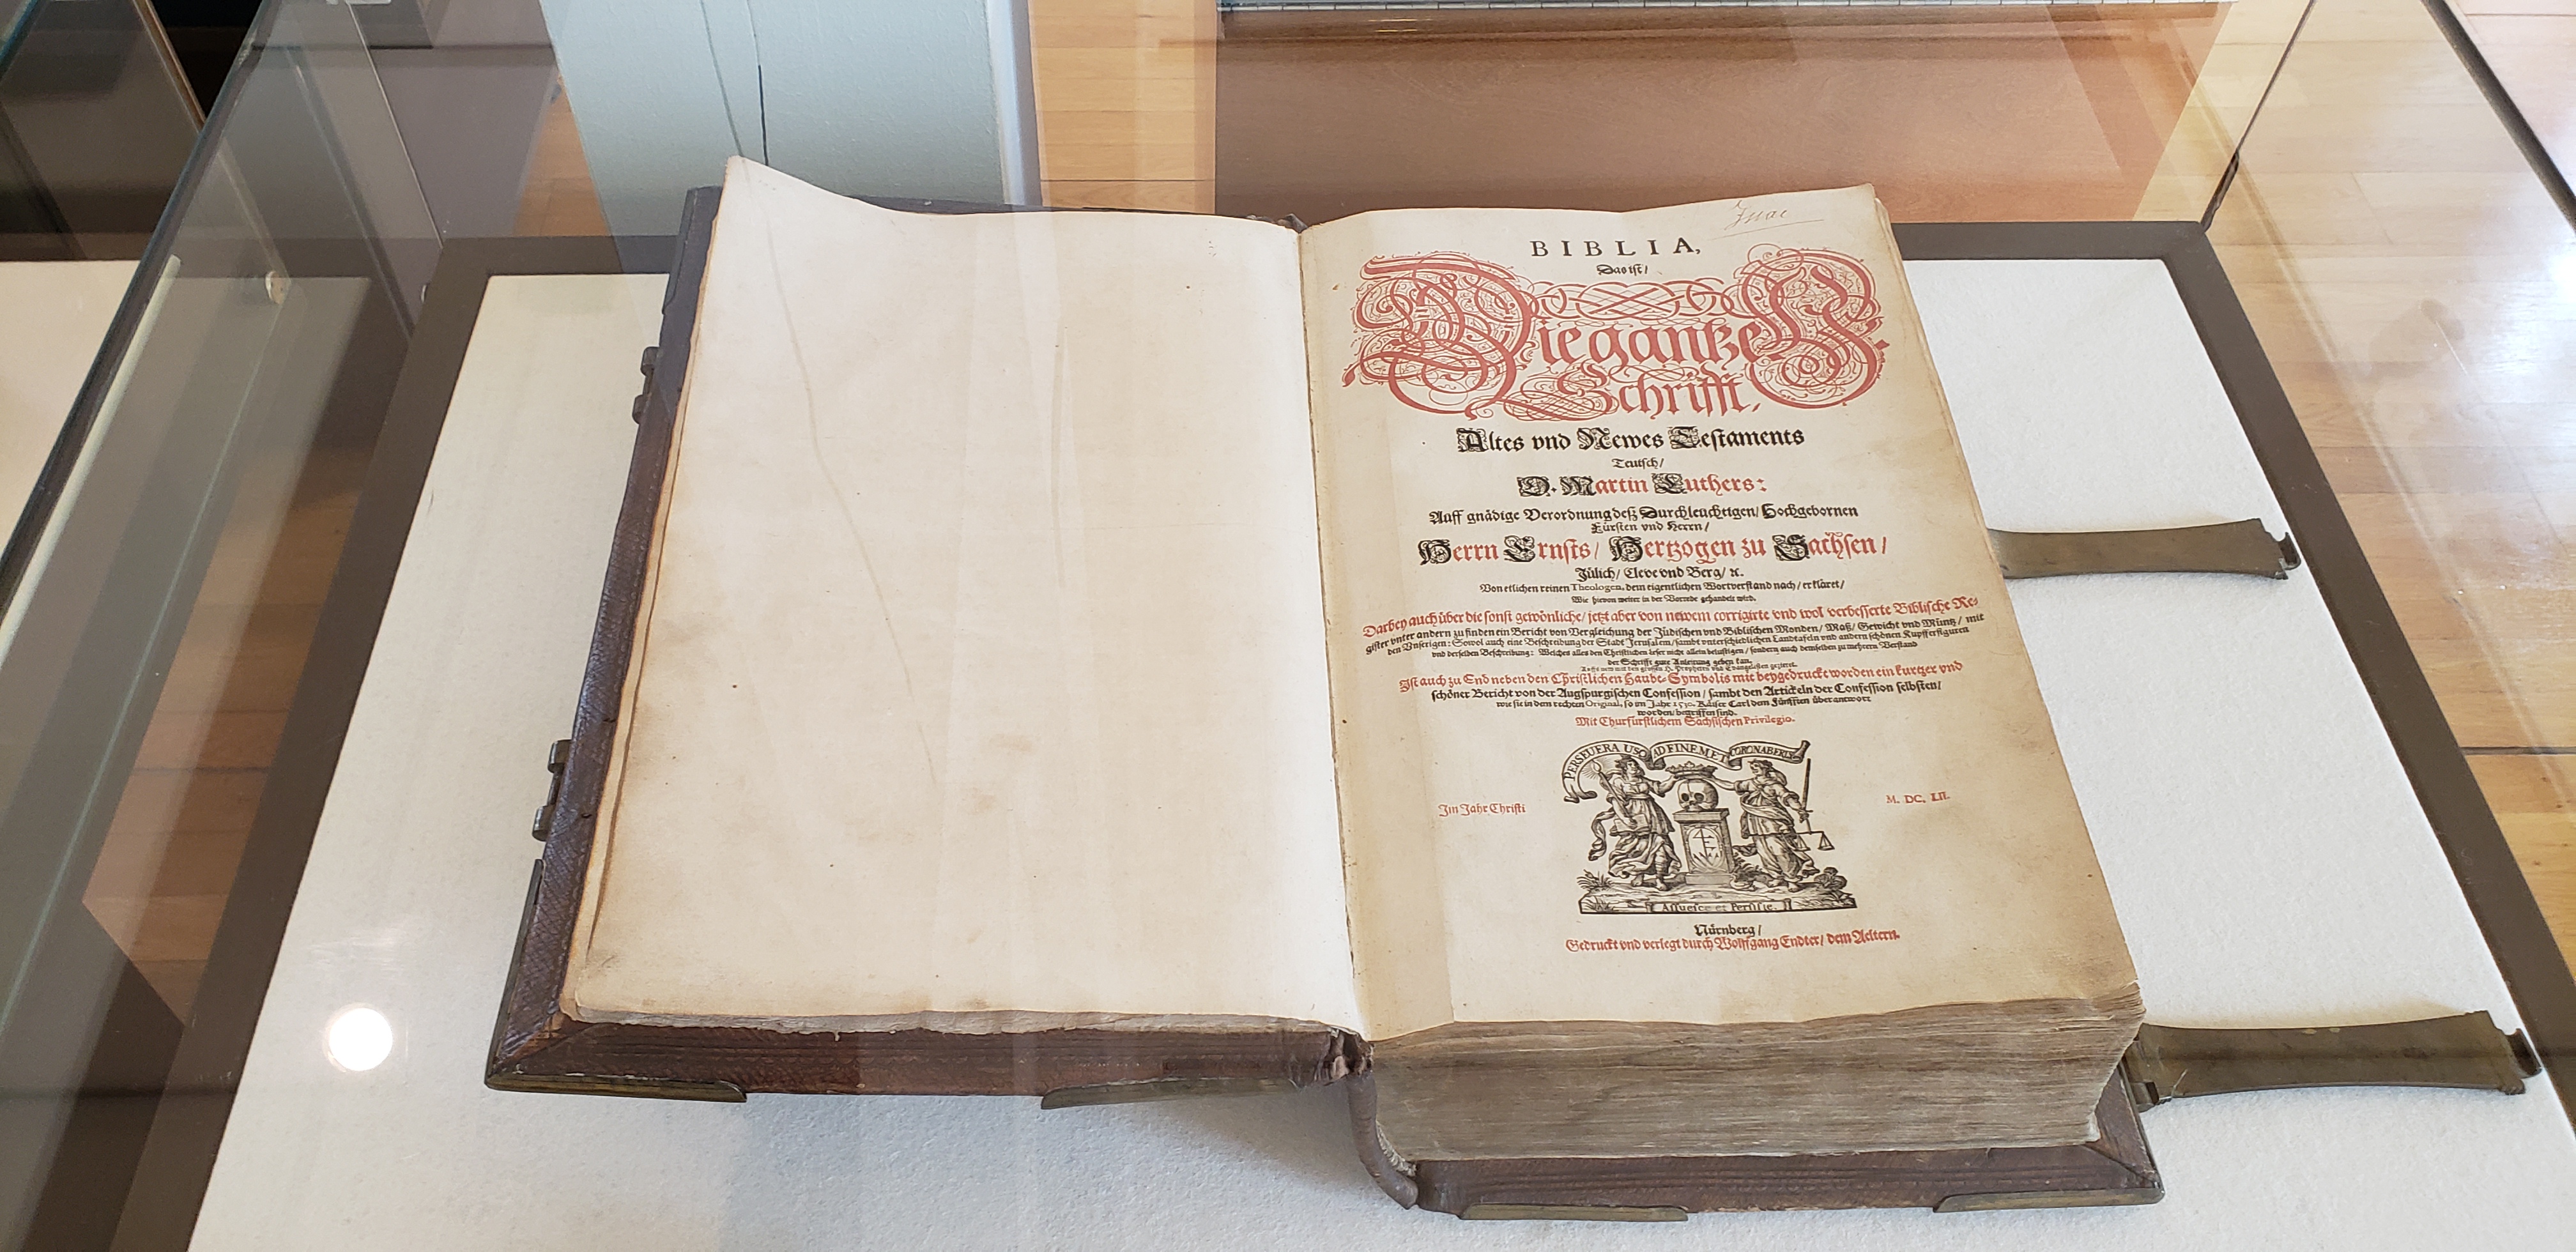 BIBLIA,
Das ist/
Die gantze H.
Schrifft,
Altes vnd Newes Testaments
Teutsch/
D. Martin Luthers:
Auff gnädige Verordnung deß Durchleuchtigen/ Hochgebornen
Fürsten vnd Herrn/
Herrn Ernsts/ Hertzogen zu Sachsen/
Jülich/ Cleve vnd Berg/ ꝛc.
Von etlichen reinen Theologen, dem eigentlichen Wortverstand nach/ erkläret/
Wie hievon weiter in der Vorrede gehandelt wird.
Darbey auch über die sonst gewönliche/ jetzt aber von newem corrigirte vnd wol verbesserte Biblische Re-
gister vnter andern zu finden ein Bericht von Vergleichung der Jüdischen vnd Biblischen Monden/ Maß/ Gewicht vnd Müntz/ mit
den Vnserigen: Sowol auch eine Beschreibung der Stadt Jerusalem/ sambt vnterschiedlichen Landtafeln vnd andern schönen Kupfferfiguren
vnd derselben Beschreibung: Welches alles den Christlichen Leser nicht allein belustigen/ sondern auch demselben zu mehrern Verstand
der Schrifft gute Anleitung geben kan.
Ist auch zu End neben den Christlichen Haubt-Symbolis mit beygedruckt worden ein kurtzer vnd
schöner Bericht von der Augspurgischen Confession/ sambt den Artickeln der Confession selbsten/
wie sie in dem rechten Original, so im Jahr 1530. Käiser Carl dem Fünfften überantwort
worden/ begriffen sind.
Mit Churfürstlichem Sächsischen Privilegio.
PERSEUERA USQ AD FINEM ET CORONABERIS
Im Jahr Christi
M. DC. LII.
Assuesce et Persiste.
Nürnberg/
Gedruckt vnd verlegt durch Wolffgang Endter/ dem Aeltern.